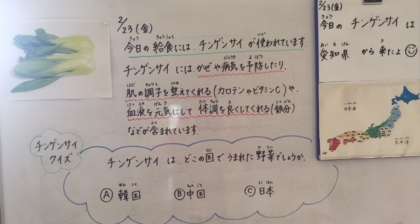 2/23(金)
今日の給食には チンゲンサイ が使われています
チンゲンサイには かぜや病気を予防したり、
肌の調子を整えてくれる (カロテンやビタミンC)や、
血液を元気にして 体調を良くしてくれる(鉄分)
などが含まれています
チンゲンサイ
クイズ
チンゲンサイ は どこの国で うまれた 野菜でしょうか。
Ⓐ 韓国 Ⓑ 中国 Ⓒ 日本
2/23(金)
今日の チンゲンサイ は
愛知県 から 来たよ